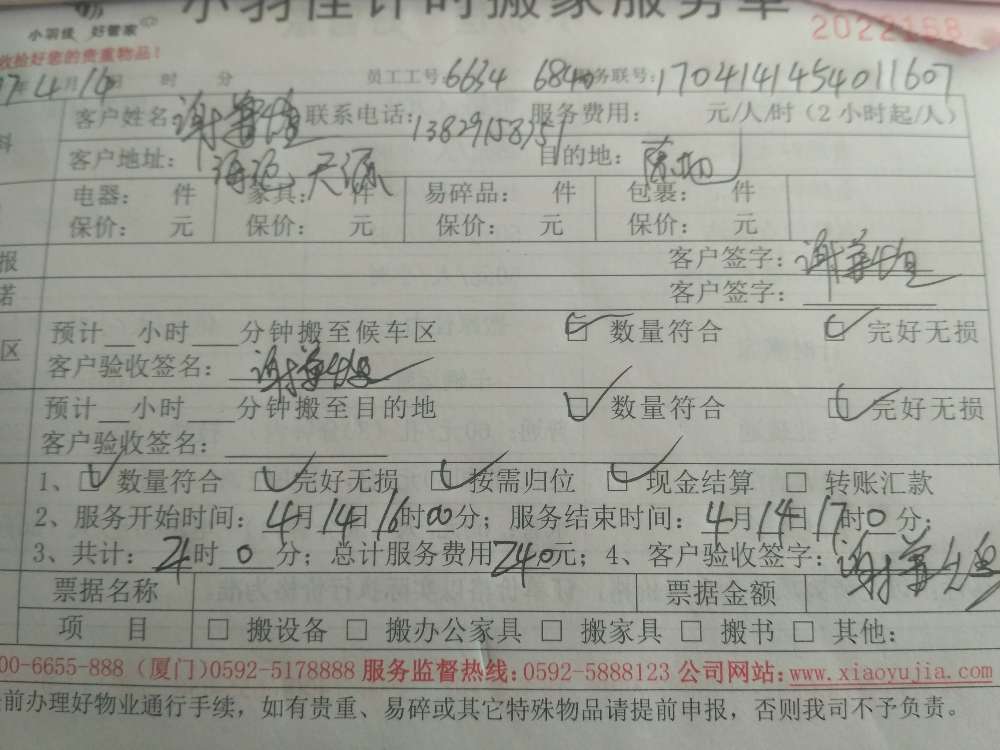 小羽佳 好管家 小羽佳计时搬家服务单
收拾好您的贵重物品! 2022168
年4月14日 时 分 员工工号:6634 6840 服务联号:1704141454011607
客户姓名 联系电话:13829158751 服务费用: 元/人/时(2小时起/人)
客户地址: 天源 目的地:
电器: 件 家具: 件 易碎品: 件 包裹: 件
保价: 元 保价: 元 保价: 元 保价: 元
报 客户签字:
诺 客户签字:
区 预计__小时____分钟搬至候车区 数量符合 完好无损
客户验收签名:
预计__小时____分钟搬至目的地 数量符合 完好无损
客户验收签名:
1、 数量符合 完好无损 按需归位 现金结算 □ 转账汇款
2、服务开始时间:4月14日16时00分;服务结束时间:4月14日17时0分;
3、共计:24时0分;总计服务费用240元;4、客户验收签字:
票据名称 票据金额
项 目 □ 搬设备 □ 搬办公家具 □ 搬家具 □ 搬书 □ 其他:
00-6655-888 (厦门)0592-5178888 服务监督热线:0592-5888123 公司网站:www.xiaoyujia.com
前办理好物业通行手续,如有贵重、易碎或其它特殊物品请提前申报,否则我司不予负责。